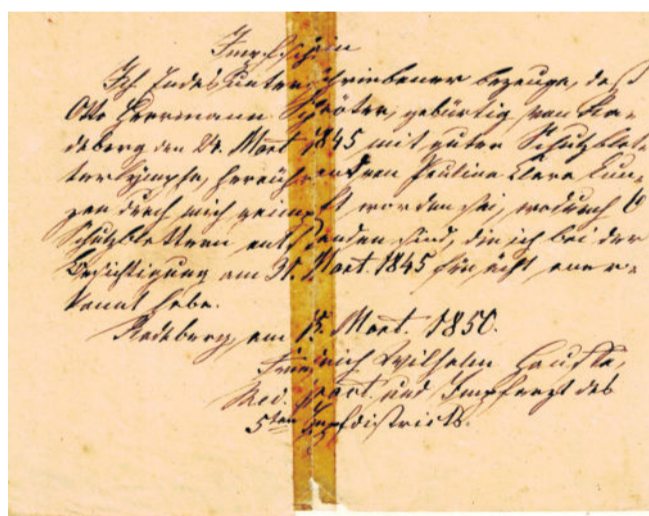 Impfschein
Ich Endesunterschriebener bezeuge, daß
Otto Herrmann Schröter, gebürtig von Ra-
deberg den 24. Maet 1845 mit guter Schutzblat-
terlymphe, herrührend von Pauline Clara Kun-
zen durch mich geimpft worden sei, wodurch 6
Schutzblattern entstanden sind, die ich bei der
Besichtigung am 31. Maet. 1845 für ächt aner-
kannt habe.
Radeberg, am 15. Maet. 1850.
Friedrich Wilhelm
Med. pract. und Impfarzt des
5ten Impfdistricts.